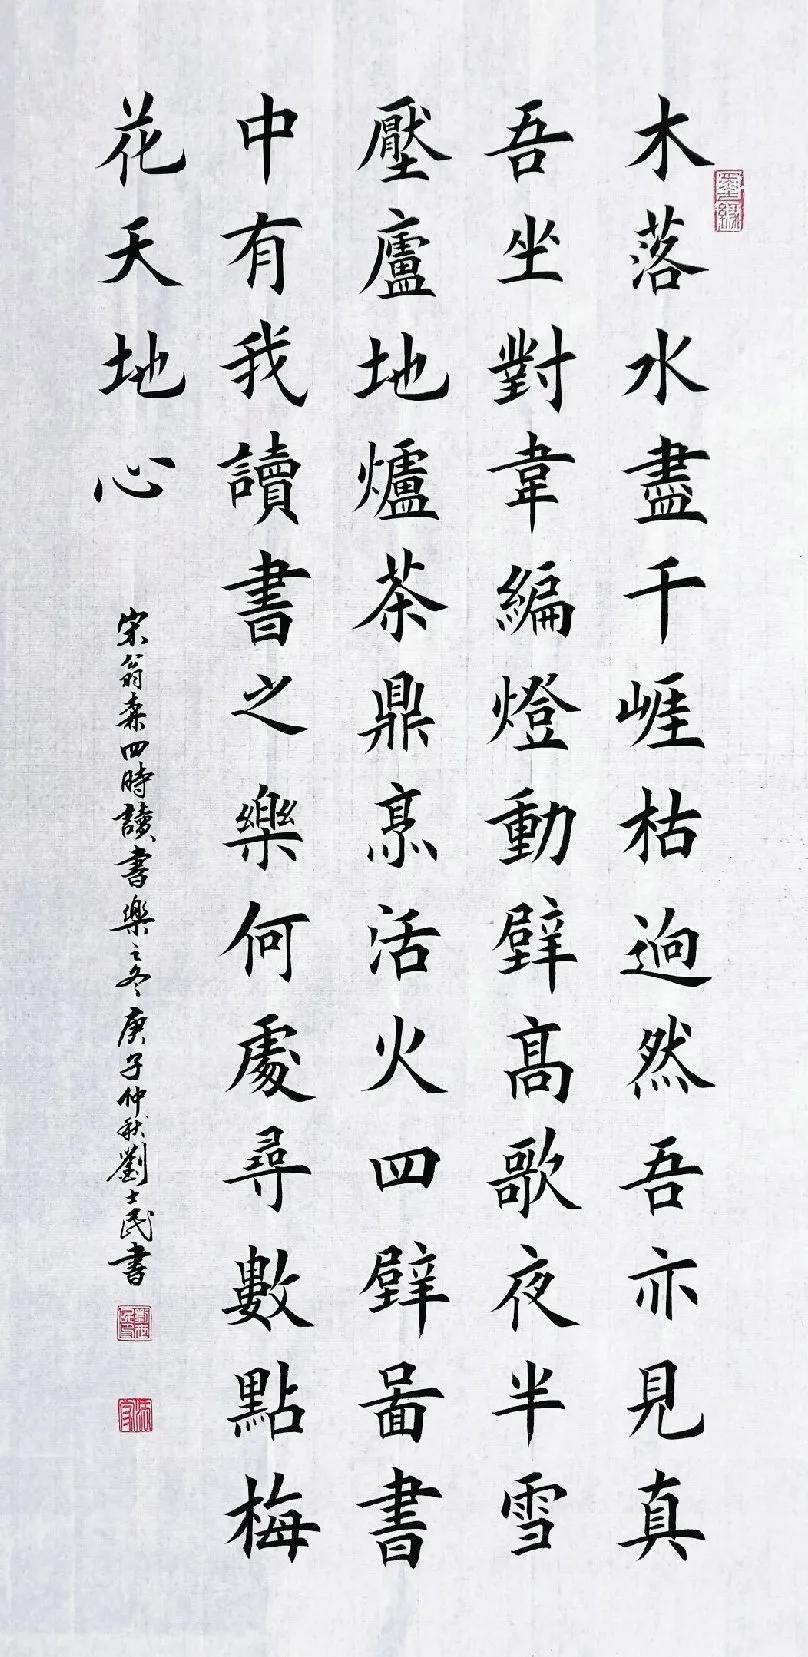 木落水盡千崖枯逈然吾亦見真
吾坐對韋編燈動壁髙歌夜半雪
壓廬地爐茶鼎烹活火四壁啚書
中有我讀書之樂何處尋數點梅
花天地心
宋翁森四時讀書樂之冬庚子仲秋劉士民書
墨緣